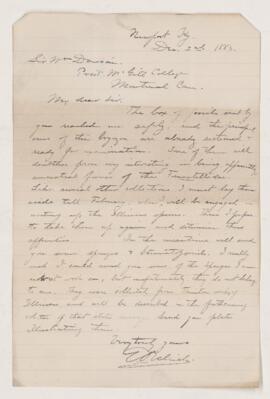 Newport Ky.
Dec. 2nd 1883.
Sir Wm Dawson
Prest. McGill College
Montreal Can.
My dear Sir.
The box of fossils sent by
you reached me safely and the
of the bryozoa are already sectioned +
ready for examination. Some of them will
doubtless prove interesting in being apparently
forms of the
Like several other collections I must lay them
aside till February, when I will be engaged in
writing up the Illinois species. Then I propose
to take them up again and determine those
In the meantime will send
you some sponges & Stromatoporoids. I really
wish I could send you some of the sponges I am
now at, but unfortunately they do not belong
to me. They were collected from Trenton of
Illinois and will be described in the forthcoming
volume of that state survey. Send you plate
illustrating them.
Very truly yours
E.O. Ulrich